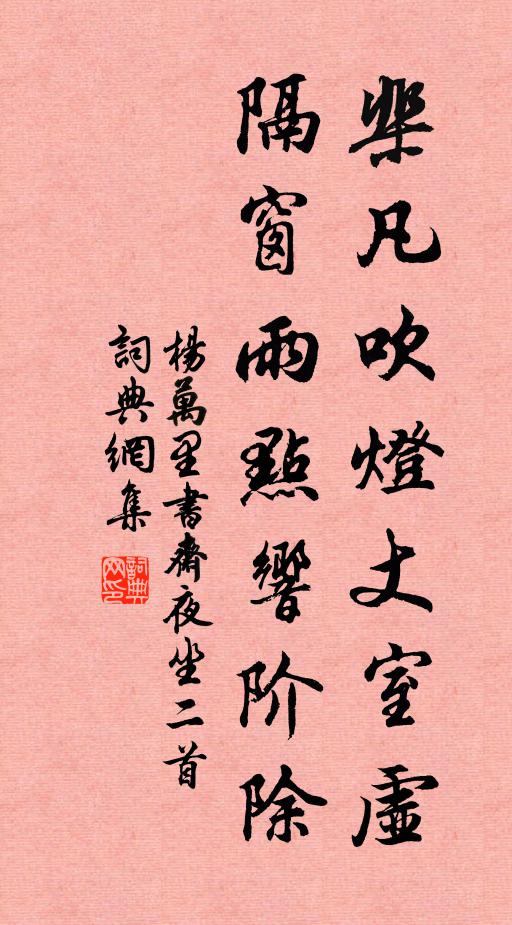 棐凡吹燈丈室虛
隔窗雨點響阶除
楊萬里書齋夜坐二首
詞典網集
詞典网印